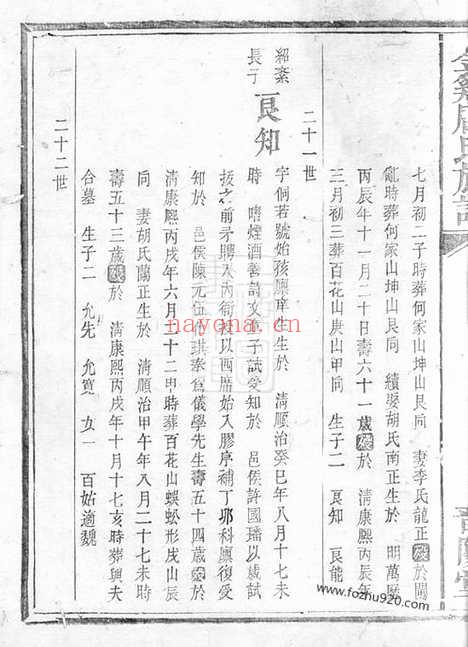 七月初二子時葬何家山坤山艮同　妻李氏龍正歿於閩
亂時葬何家山坤山艮同　續娶胡氏南正生於　明萬曆
丙辰年十一月二十日壽六十一歲歿於　清康熙丙辰年
三月初三葬百花山庚山甲同　生子二　良知　良能
二十一世
紹素
長子
良知
字侗若號始孩廩庠生生於　清順治癸巳年八月十七未
時　嗜煙酒善詩文童子試受知於　邑侯許國璠以歲試
拔之前矛聘入內衙課以西席始入膠庠補丁卯科廩復受
知於　邑侯陳元伍代
為儀學先生壽五十四歲歿於
清康熙丙戌年六月二十二
時葬百花山蜈蚣形戌山辰
同　妻胡氏蘭正生於　清順治甲午年八月二十七未時
壽五十三歲歿於　清康熙丙戌年十月十七亥時葬與夫
合墓　生子二　允先　允寬　女一　百姑適魏
二十二世
氏族譜
nayona.cn
www.fozhu920.com